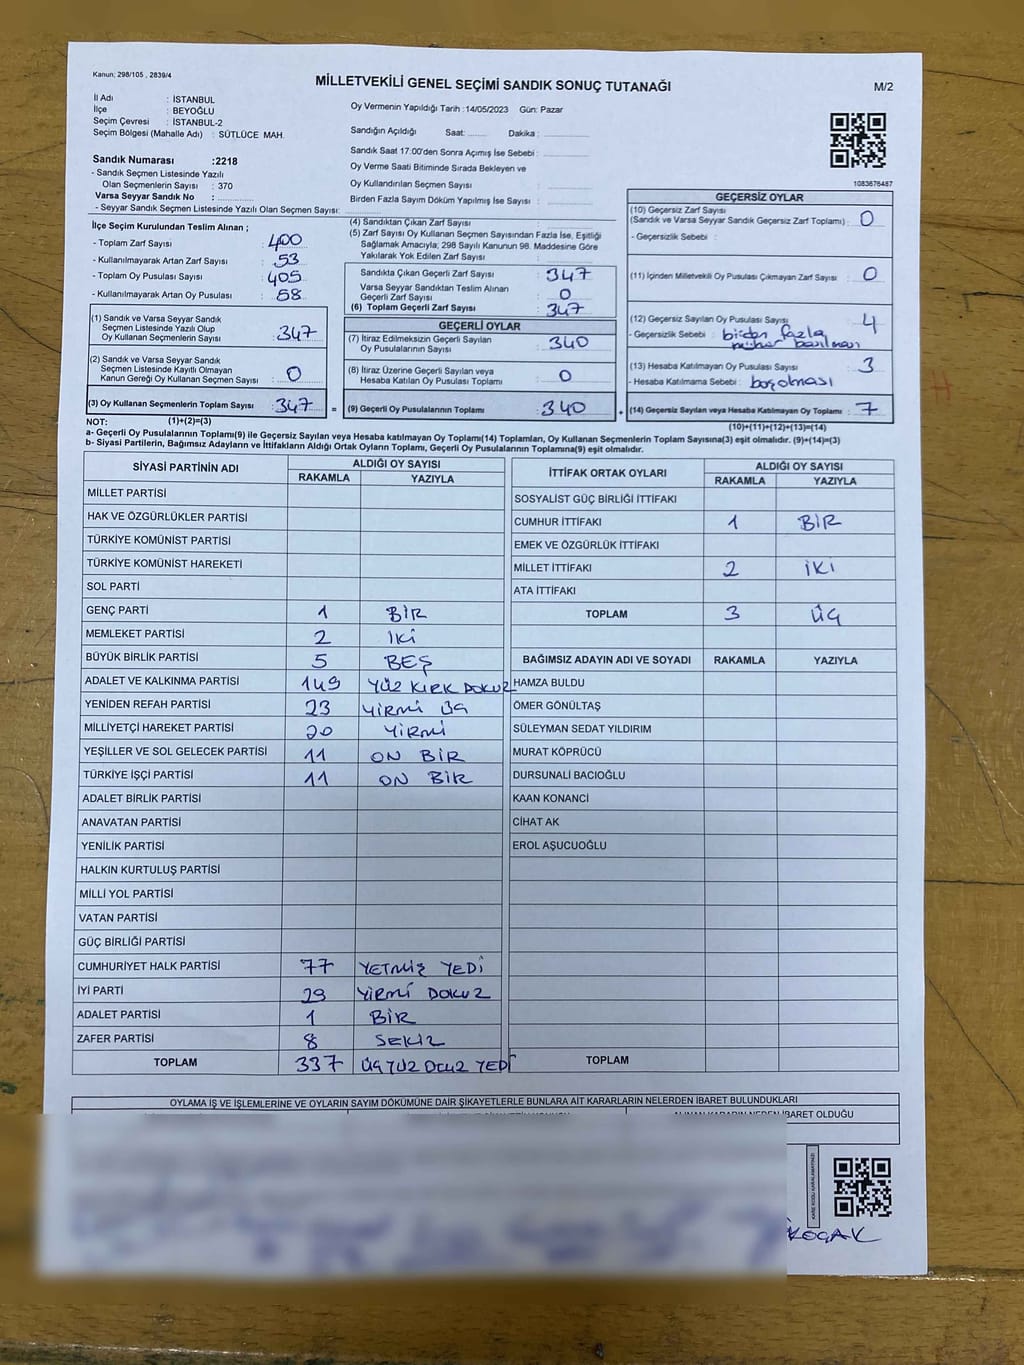 Kanun; 298/105 , 2839/4
MİLLETVEKİLİ GENEL SEÇİMİ SANDIK SONUÇ TUTANAĞI
M/2
İl Adı : İSTANBUL
İlçe : BEYOĞLU
Seçim Çevresi : İSTANBUL-2
Seçim Bölgesi (Mahalle Adı) : SÜTLÜCE MAH.
Oy Vermenin Yapıldığı Tarih :14/05/2023 Gün: Pazar
Sandığın Açıldığı Saat: ........ Dakika : ..............
Sandık Saat 17:00'den Sonra Açımış İse Sebebi : ..............
Oy Verme Saati Bitiminde Sırada Bekleyen ve
Oy Kullandırılan Seçmen Sayısı : ..............
Birden Fazla Sayım Döküm Yapılmış İse Sayısı : ..............
Sandık Numarası :2218
- Sandık Seçmen Listesinde Yazılı
Olan Seçmenlerin Sayısı : 370
Varsa Seyyar Sandık No : ..............
- Seyyar Sandık Seçmen Listesinde Yazılı Olan Seçmen Sayısı: ..............
1083676487
İlçe Seçim Kurulundan Teslim Alınan ;
- Toplam Zarf Sayısı : 400
- Kullanılmayarak Artan Zarf Sayısı : 53
- Toplam Oy Pusulası Sayısı : 405
- Kullanılmayarak Artan Oy Pusulası : 58
(1) Sandık ve Varsa Seyyar Sandık
Seçmen Listesinde Yazılı Olup
Oy Kullanan Seçmenlerin Sayısı : 347
(2) Sandık ve Varsa Seyyar Sandık
Seçmen Listesinde Kayıtlı Olmayan
Kanun Gereği Oy Kullanan Seçmen Sayısı : 0
(3) Oy Kullanan Seçmenlerin Toplam Sayısı : 347 =
(1)+(2)=(3)
(4) Sandıktan Çıkan Zarf Sayısı : ..............
(5) Zarf Sayısı Oy Kullanan Seçmen Sayısından Fazla İse, Eşitliği
Sağlamak Amacıyla; 298 Sayılı Kanunun 98. Maddesine Göre
Yakılarak Yok Edilen Zarf Sayısı : ..............
Sandıkta Çıkan Geçerli Zarf Sayısı : 347
Varsa Seyyar Sandıktan Teslim Alınan
Geçerli Zarf Sayısı : 0
(6) Toplam Geçerli Zarf Sayısı : 347
GEÇERLİ OYLAR
(7) İtiraz Edilmeksizin Geçerli Sayılan
Oy Pusulalarının Sayısı : 340
(8) İtiraz Üzerine Geçerli Sayılan veya
Hesaba Katılan Oy Pusulası Toplamı : 0
(9) Geçerli Oy Pusulalarının Toplamı : 340 +
GEÇERSİZ OYLAR
(10) Geçersiz Zarf Sayısı
(Sandık ve Varsa Seyyar Sandık Geçersiz Zarf Toplamı) : 0
- Geçersizlik Sebebi :
(11) İçinden Milletvekili Oy Pusulası Çıkmayan Zarf Sayısı : 0
(12) Geçersiz Sayılan Oy Pusulası Sayısı : 4
- Geçersizlik Sebebi : birden fazla
mühür basılması
(13) Hesaba Katılmayan Oy Pusulası Sayısı : 3
- Hesaba Katılmama Sebebi : boş olması
(14) Geçersiz Sayılan veya Hesaba Katılmayan Oy Toplamı : 7
(10)+(11)+(12)+(13)=(14)
NOT:
a- Geçerli Oy Pusulalarının Toplamı(9) ile Geçersiz Sayılan veya Hesaba katılmayan Oy Toplamı(14) Toplamları, Oy Kullanan Seçmenlerin Toplam Sayısına(3) eşit olmalıdır. (9)+(14)=(3)
b- Siyasi Partilerin, Bağımsız Adayların ve İttifakların Aldığı Oyların Toplamı, Geçerli Oy Pusulalarının Toplamına(9) eşit olmalıdır.
SİYASİ PARTİNİN ADI ALDIĞI OY SAYISI
RAKAMLA YAZIYLA
MİLLET PARTİSİ
HAK VE ÖZGÜRLÜKLER PARTİSİ
TÜRKİYE KOMÜNİST PARTİSİ
TÜRKİYE KOMÜNİST HAREKETİ
SOL PARTİ
GENÇ PARTİ 1 BİR
MEMLEKET PARTİSİ 2 İKİ
BÜYÜK BİRLİK PARTİSİ 5 BEŞ
ADALET VE KALKINMA PARTİSİ 149 YÜZ KIRK DOKUZ
YENİDEN REFAH PARTİSİ 23 YİRMİ ÜÇ
MİLLİYETÇİ HAREKET PARTİSİ 20 YİRMİ
YEŞİLLER VE SOL GELECEK PARTİSİ 11 ON BİR
TÜRKİYE İŞÇİ PARTİSİ 11 ON BİR
ADALET BİRLİK PARTİSİ
ANAVATAN PARTİSİ
YENİLİK PARTİSİ
HALKIN KURTULUŞ PARTİSİ
MİLLİ YOL PARTİSİ
VATAN PARTİSİ
GÜÇ BİRLİĞİ PARTİSİ
CUMHURİYET HALK PARTİSİ 77 YETMİŞ YEDİ
İYİ PARTİ 29 YİRMİ DOKUZ
ADALET PARTİSİ 1 BİR
ZAFER PARTİSİ 8 SEKİZ
TOPLAM 337 ÜÇ YÜZ OTUZ YEDİ
İTTİFAK ORTAK OYLARI ALDIĞI OY SAYISI
RAKAMLA YAZIYLA
SOSYALİST GÜÇ BİRLİĞİ İTTİFAKI
CUMHUR İTTİFAKI 1 BİR
EMEK VE ÖZGÜRLÜK İTTİFAKI
MİLLET İTTİFAKI 2 İKİ
ATA İTTİFAKI
TOPLAM 3 ÜÇ
BAĞIMSIZ ADAYIN ADI VE SOYADI RAKAMLA YAZIYLA
HAMZA BULDU
ÖMER GÖNÜLTAŞ
SÜLEYMAN SEDAT YILDIRIM
MURAT KÖPRÜCÜ
DURSUNALİ BACIOĞLU
KAAN KONANCİ
CİHAT AK
EROL AŞUCUOĞLU
TOPLAM
OYLAMA İŞ VE İŞLEMLERİNE VE OYLARIN SAYIM DÖKÜMÜNE DAİR ŞİKAYETLERLE BUNLARA AİT KARARLARIN NELERDEN İBARET BULUNDUKLARI
ALINAN KARARIN NEDEN İBARET OLDUĞU
KOÇAK